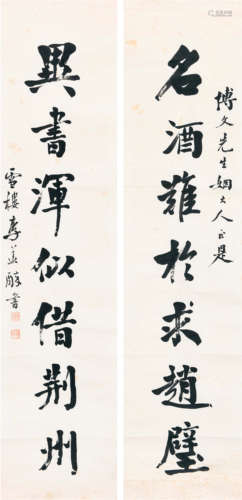 博文先生姻大人正是
名酒難於求趙璧
異書渾似借荆州
雪樓李
書